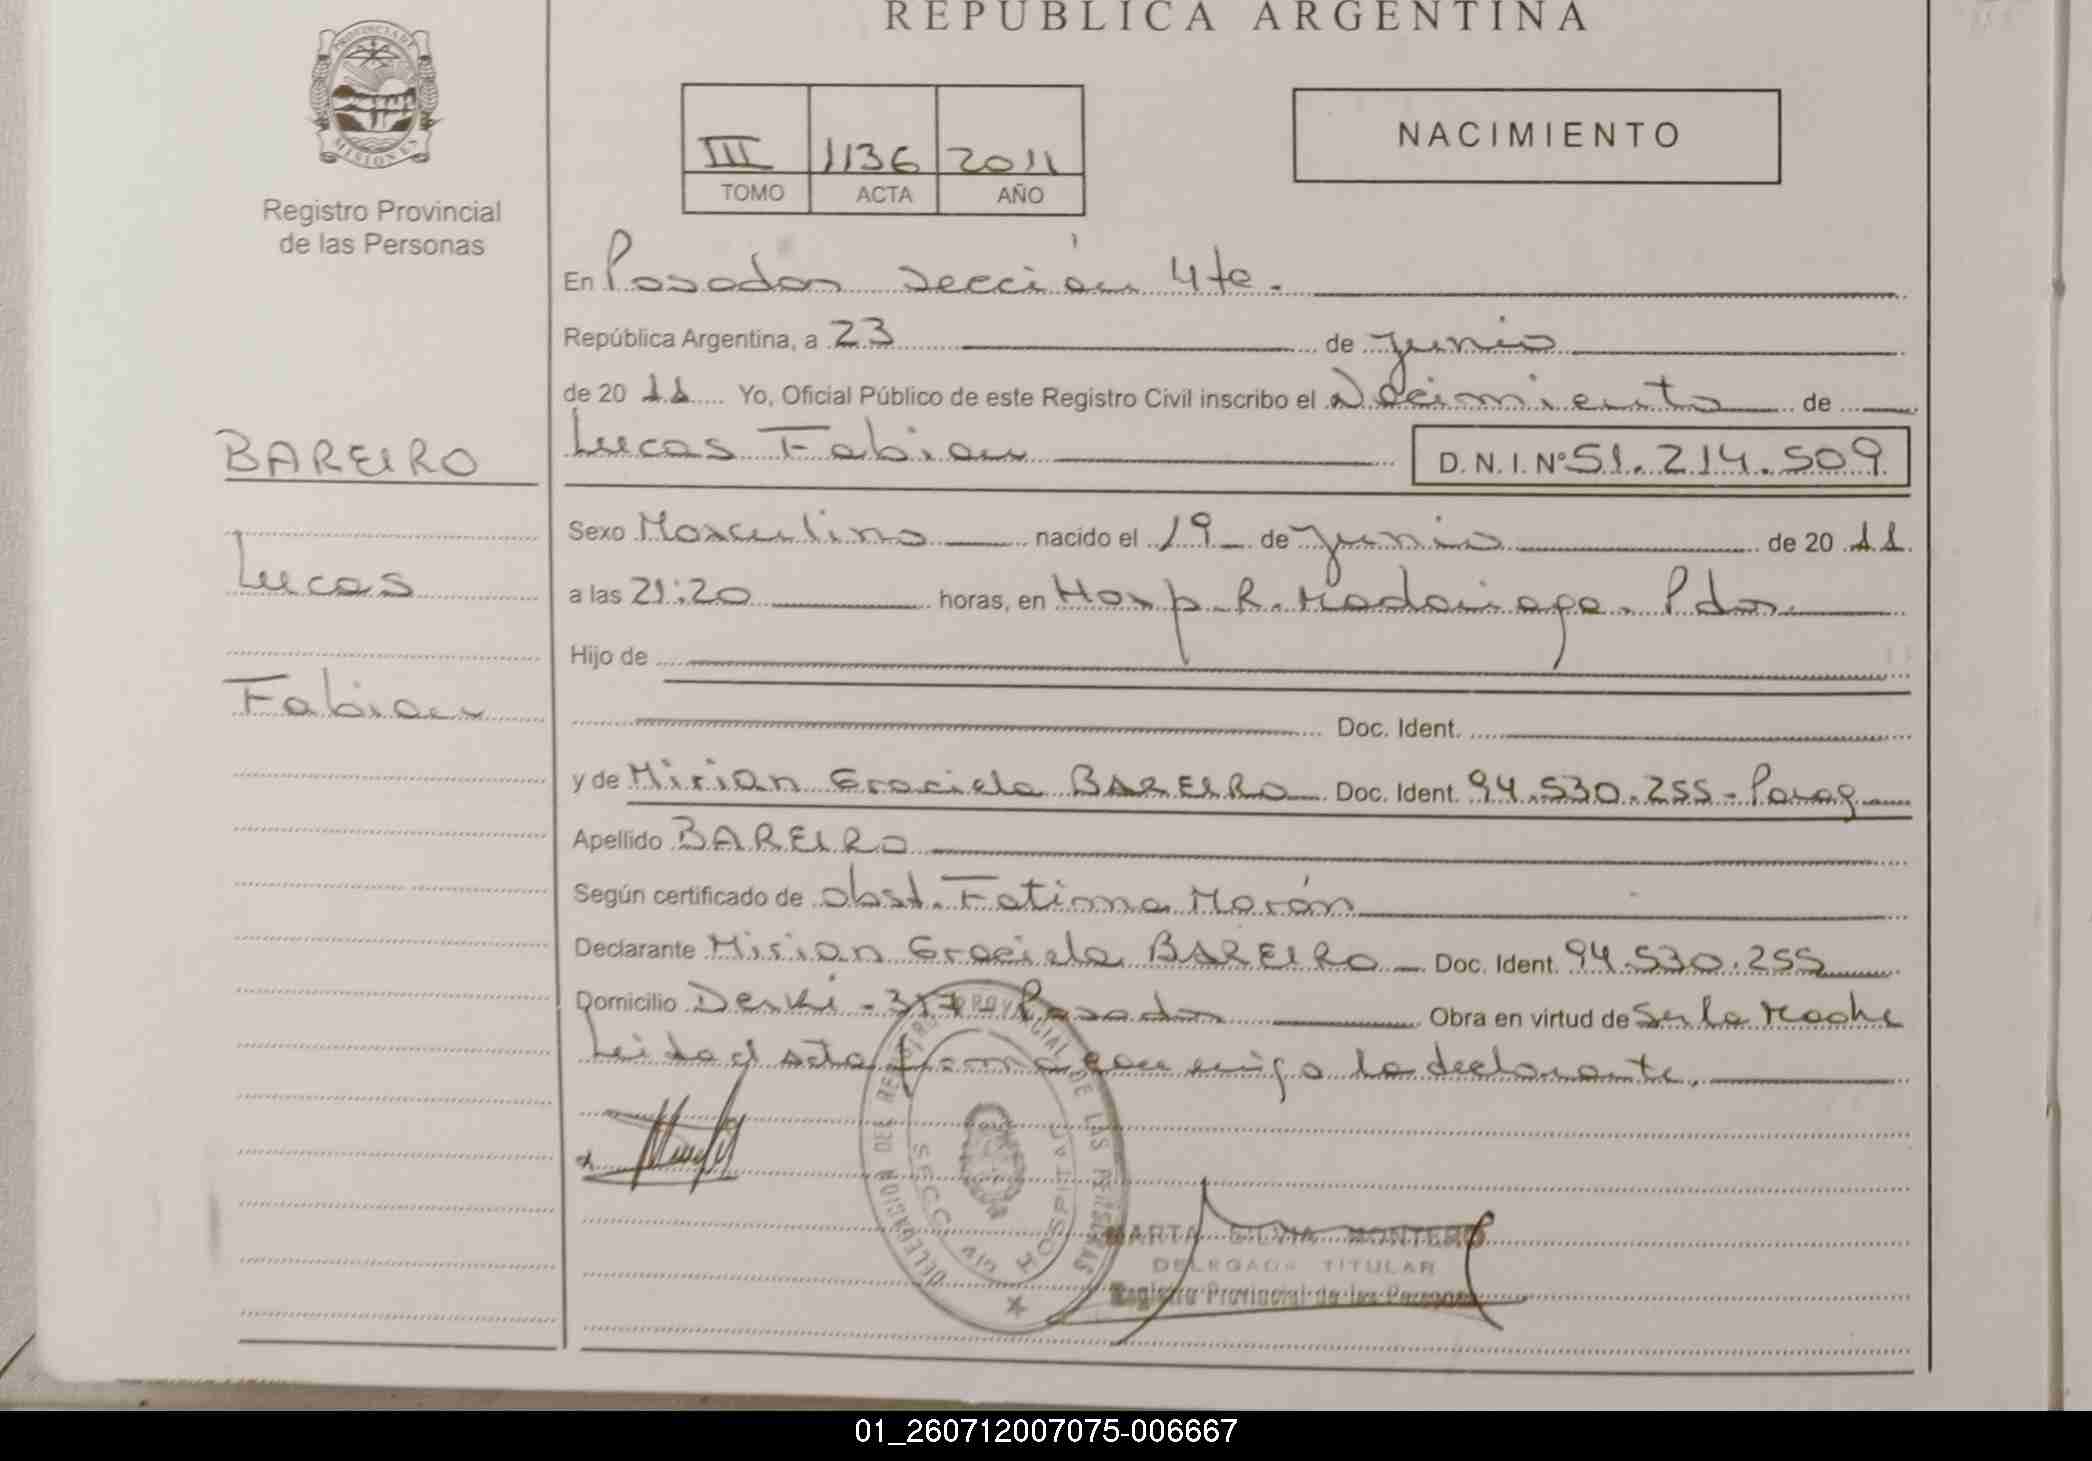 REPÚBLICA ARGENTINA
PROVINCIA DE
MISIONES
Registro Provincial
de las Personas
III 1136 2011
TOMO ACTA AÑO
NACIMIENTO
En Posadas sección 4ta.
República Argentina, a 23 de junio
de 20 11 Yo, Oficial Público de este Registro Civil inscribo el Nacimiento de
BAREIRO
Lucas Fabian D. N. I. Nº 51.214.509
Sexo Masculino nacido el 19 de junio de 20 11
Lucas
a las 21:20 horas, en Hosp. R. Madariaga. Pdas.
Hijo de
Fabian
Doc. Ident.
y de Mirian Graciela BAREIRO Doc. Ident. 94.530.255 - Parag
Apellido BAREIRO
Según certificado de obst. Fatima Morán
Declarante Mirian Graciela BAREIRO Doc. Ident. 94.530.255
Domicilio Posadas Obra en virtud de Ser la Madre
Leida el acta firma conmigo la declarante.
DELEGACION DEL REGISTRO PROVINCIAL DE LAS PERSONAS
SECC. 4ta HOSPITAL
MARTA SILVIA MONTERO
DELEGADA TITULAR
Registro Provincial de las Personas
01_260712007075-006667